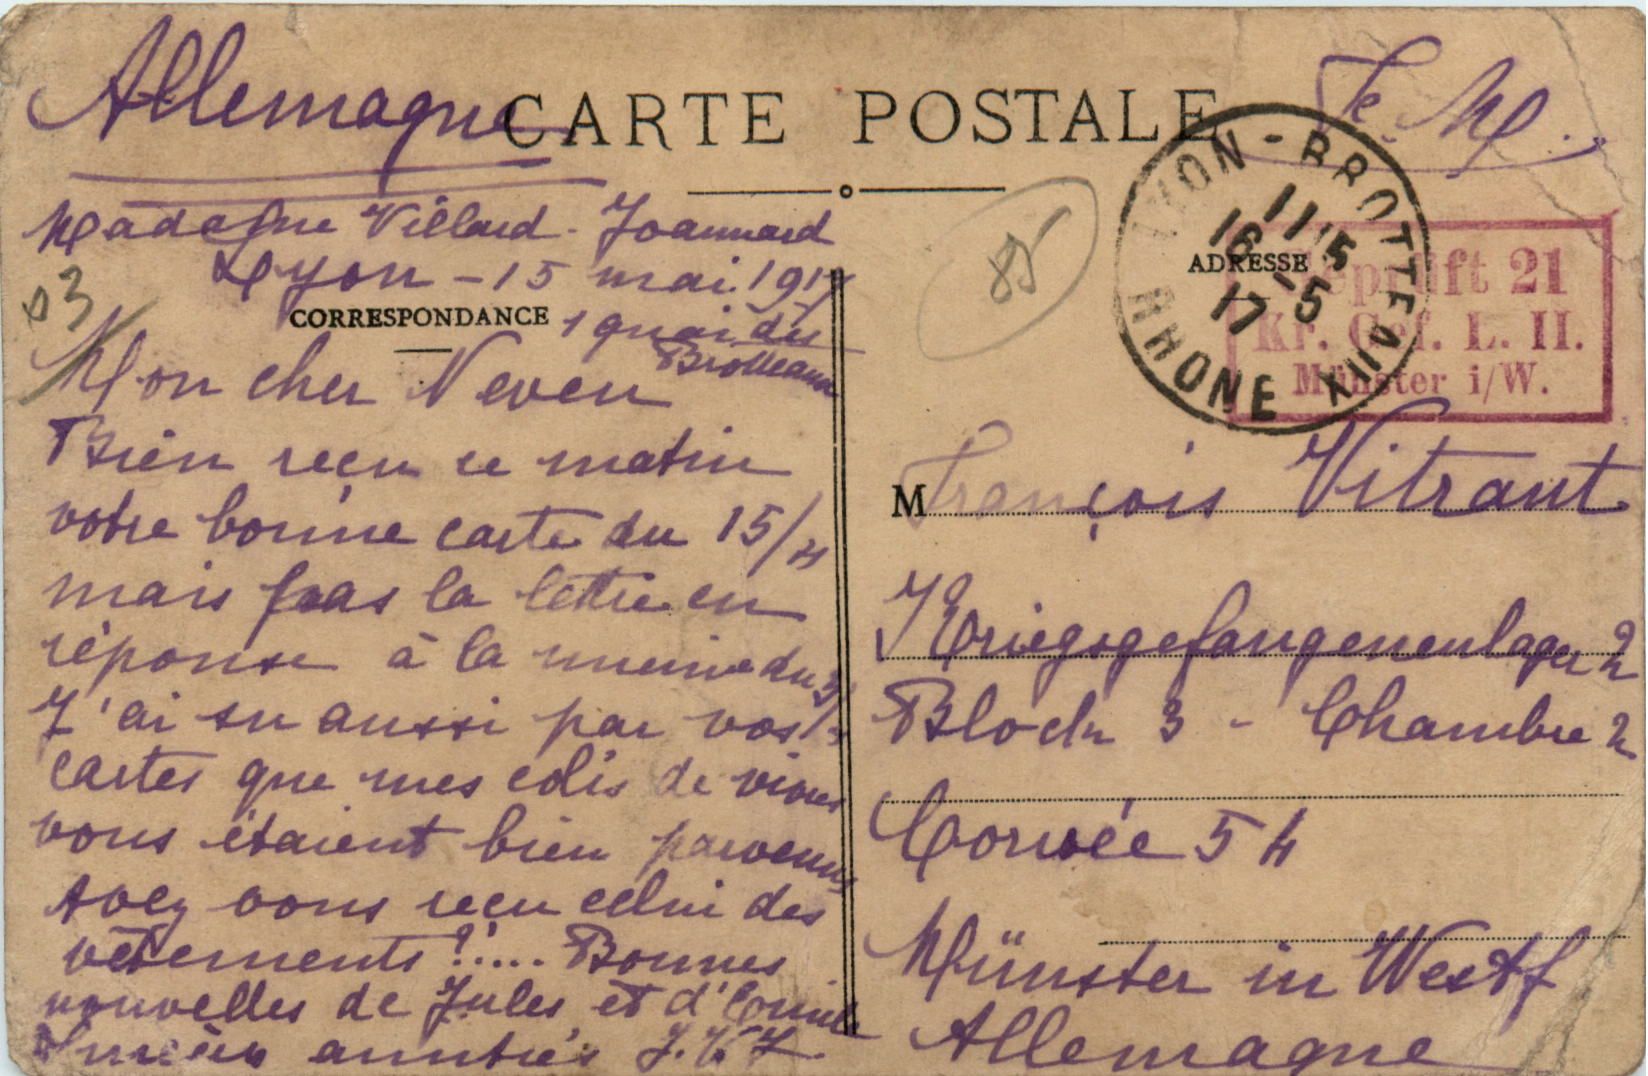 Allemagne
CARTE POSTALE
F. M.
Madame Villard - Joannard
Lyon - 15 mai 1917
CORRESPONDANCE
1 quai des
Brotteaux
83
85
Mon cher Neveu
Bien reçu ce matin
votre bonne carte du 15/4
mais pas la lettre en
réponse à la mienne du
J'ai su aussi par vos
cartes que mes colis de vivres
vous étaient bien parvenus
Avez vous reçu celui des
vêtements ?!.... Bonnes
nouvelles de Jules et d'
amitiés J. V. J.
LYON - BROTTEAUX
11 15
16 - 5
17
RHONE
ADRESSE
Geprüft 21
Kr. Gef. L. II.
Münster i/W.
M François Vitrant
Kriegsgefangenenlager 2
Block 3 - Chambre 2
Corvée 54
Münster in Westf
Allemagne